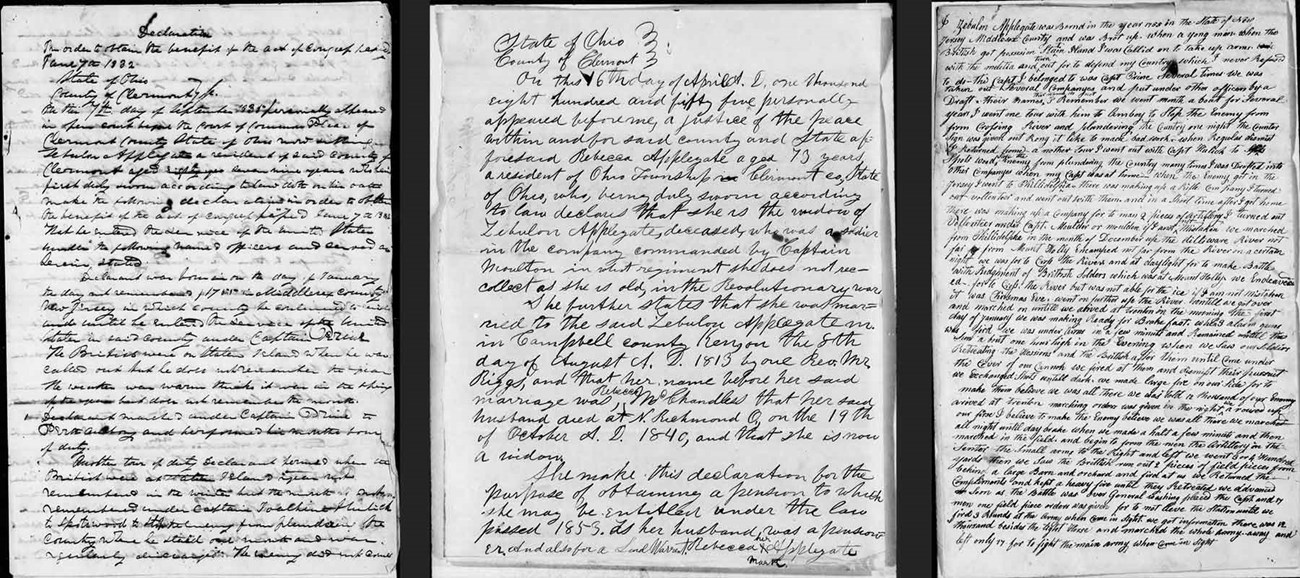 Declaration
In order to obtain the benefit of the act of Congress passed
June 7th 1832
State of Ohio
County of Clermont
day of September personally appeared
in open court before the Court of Common Pleas of
Clermont County State of Ohio now sitting
Zebulon Applegate a resident of said County of
Clermont aged nine years who being
first duly sworn according to law doth on his oath
make the following declaration in order to obtain
the benefit of the act of Congress passed June 7th 1832
That he entered the service of the United States
under the following named officers and served as
herein stated
Declarant was born on the day of January
the day not remembered in Middlesex County
New Jersey in which county he continued to live
and until he entered the service of the United
States in said County under Captain
The British were on Staten Island when he was
called out but he does not remember the year
The weather was warm think it was in the spring
but does not remember the month
Declarant marched under Captain to
Perth Amboy and performed his months tour
of duty.
Another tour of duty declarant performed when the
British were at Staten Island year not
remembered in the month not
remembered under Captain
to Spotswood to the enemy from plundering the
County where he staid out month and was
regularly discharged. The enemy did not come
State of Ohio
County of Clermont
On this 6th day of April A. D. one thousand
eight hundred and fifty five personally
appeared before me, a justice of the peace
within and for said county and State af
foresaid Rebecca Applegate aged 73 years
a resident of Ohio Township in Clermont co, State
of Ohio, who, being duly sworn according
to law declares that she is the widow of
Zebulon Applegate, deceased, who was a soldier
in the company commanded by Captain
Moulton in what regiment she does not rec-
collect as she is old, in the Revolutionary war
She further states that she was mar-
ried to the said Zebulon Applegate in
in Campbell county Ken, on the 8th
day of August A. D. 1813 by one Rev. Mr
Riggs, and that her name before her said
marriage was Rebecca McChandless that her said
husband died at N. Richmond O, on the 19th
of October A. D. 1840, and that she is now
a widow.
She make this declaration for the
purpose of obtaining a pension to which
she may be entitled under the law
passed 1853. as her husband, was a pension
er, and also for a Land Warrant. Rebecca her x Applegate
mark.
6 Zebulon Applegate was Bornd in the year in the State of New
Jersey Middlesex County and was Brot up. when a yong man when the
British got possesion Staten Iland I was Called on to take up arms
with the militia and out for to defend my Country which I never Refused
to do- the Capt I belonged to was Capt Prine Several times we was
taken out Several Companyes and put under other officers by a
Draft - their names, I Remember we went month a bout for Several
year, I went one tour with him to Amboy to Stop the Enemy from
from Crossing River and plundering the Country one night the Counter
Sign was given out
a nother tour I went out with Capt
from plundering the Country many times I was Drafted into
other Companyes when my Capt was at home when the Enemy got in the
Jersey I went to Philidelphia there was making up a Rifle Company I turned
out volenteer and went out with them and in a Short time after I got home
there was making up a Company for to man 2 pieces of artillery I turned out
Volentier under Capt. Moulder or moulder if I aint Mistaken we marched
from Philidelphia in the month of December up the dillaware River not
far from Mount Holly Encamped not far from the River in a certain
night we was for to Cross the River and at daylight for to make Battle
with Redgiment of British Solders which was at Mount Holly we Endeavered
for to Cross the River but was not able for the ice if I am not Mistaken
it was Christmas Eve. went on further up the River untill we got over
and marched on untill we arived at Trenton in the morning the first
day of January we was making Ready for Brake fast, whilst alarm gun
was fired we was under arms in a few minuits and Remained untill the
Sun a bout one hour high in the Evening when we Saw our Solders
Retreating the Hessians and the British after them untill Come under
the Cover of our Cannon we fired at them and Stopt their pursuit
we Exchanged Shots untill dark. we made large fire on our Side for to
make them believe we was all there we was told a thousand of our Enemy
arived at Trenton marching orders was given in the night
our fire I believe to make the Enemy believe we was all there we marched
all night untill day brake when we made a halt a few minuits and then
marched in the field. and begin to form the men the Artillery in the
Senter the Small arms to the Right and left we went 3 or 4 Hundred
yards then we Saw the British run out 2 pieces of field pieces from
behing a large Barn and orchard and fired at us we Returned the
Compliments and kept a heavy fire until they Retreated we advanced
as Soon as the Battle was over General Washing placed the Capt and 17
men one field piece orders was given for to not leve the Station until we
fired 3 Rounds at the Army when Come in Sight. we got information there was 12
thousand beside the light Horse and marched the whole army away and
left only 17 for to fight the main army when Come in Sight